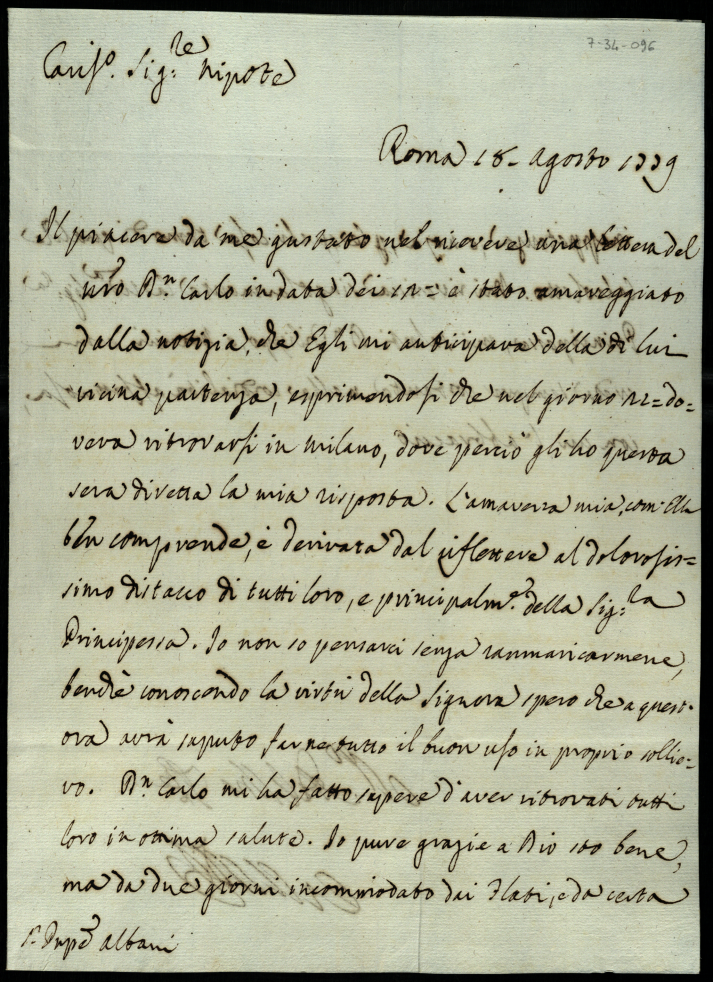 7-34-096
Cariſo. Sig:re Nipote
Roma 18. Agosto 1779
Il piacere da me gustato nel ricevere una lettera del
vro Dn. Carlo in data dei 12= è stato amareggiato
dalla notizia, che Egli mi anticipava della di lui
vicina partenza, esprimendosi che nel giorno 22= do=
veva ritrovarsi in Milano, dove perciò gli ho questa
sera diretta la mia risposta. L'amarezza mia, com'Ella
ben comprende, è derivata dal riflettere al dolorosis=
simo distacco di tutti loro, e principalme. della Sig:ra
Principessa. Io non so pensarci senza rammaricarmene,
benchè conoscendo la virtù della Signora spero che a quest'
ora avrà saputo farne tutto il buon uso in proprio sollie=
vo. Dn. Carlo mi ha fatto sapere d'aver ritrovati tutti
loro in ottima salute. Io pure grazie a Dio sto bene,
ma da due giorni incommodato dai Flati, e da certa
Albani